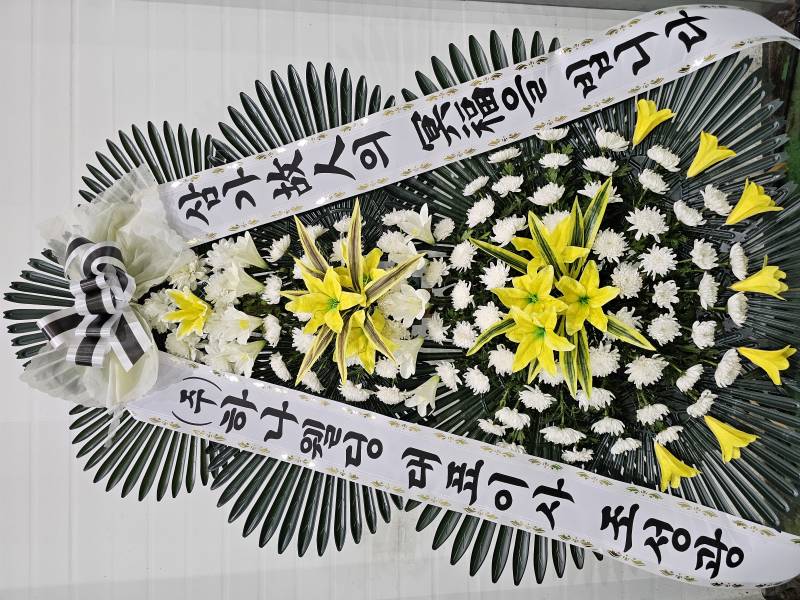 삼가 故人의 冥福을 빕니다
(주)하나웰딩 대표이사 조성광